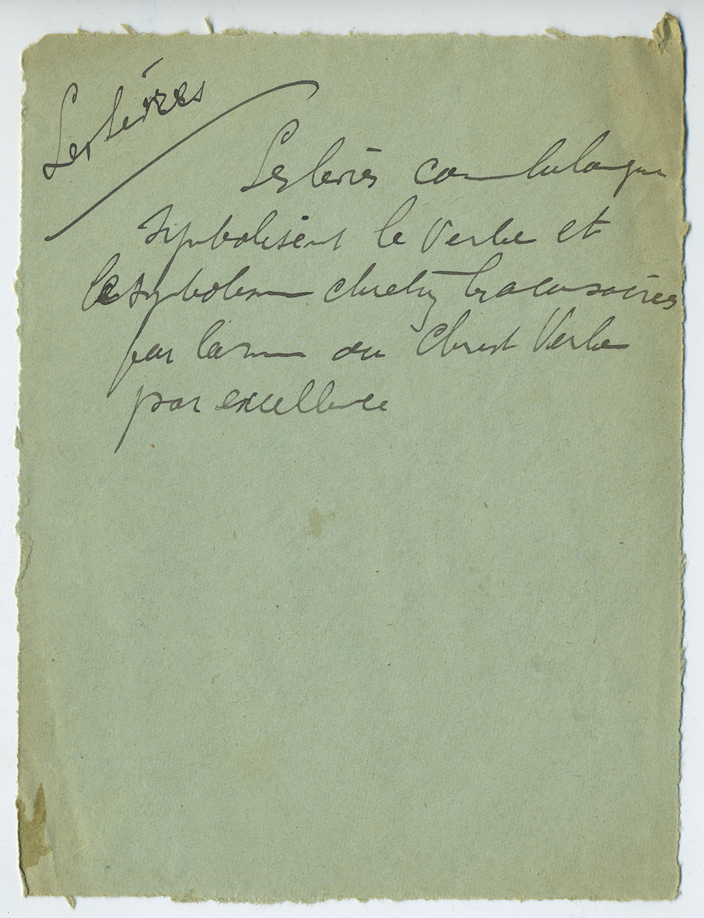 Les lèvres
Les lèvres comme la langue
symbolisent le Verbe et
le symbolisme chrétien les a consacrées
par l'arme du Christ Verbe
par excellence